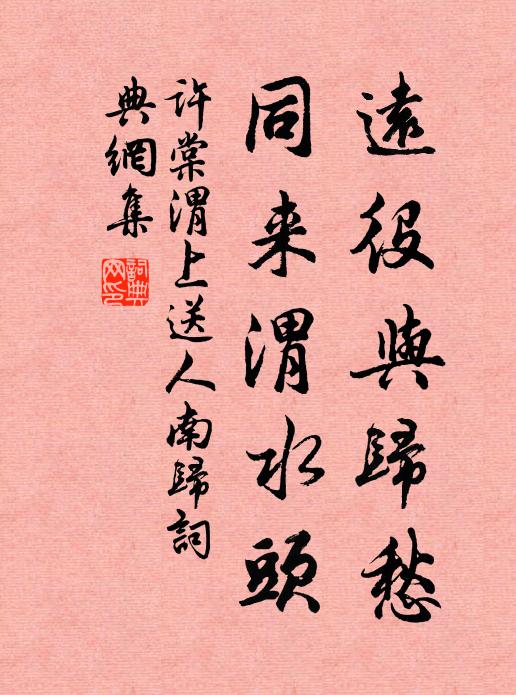 遠役與歸愁
同来渭水頭
許棠渭上送人南歸詞
典網集
詞典
网印